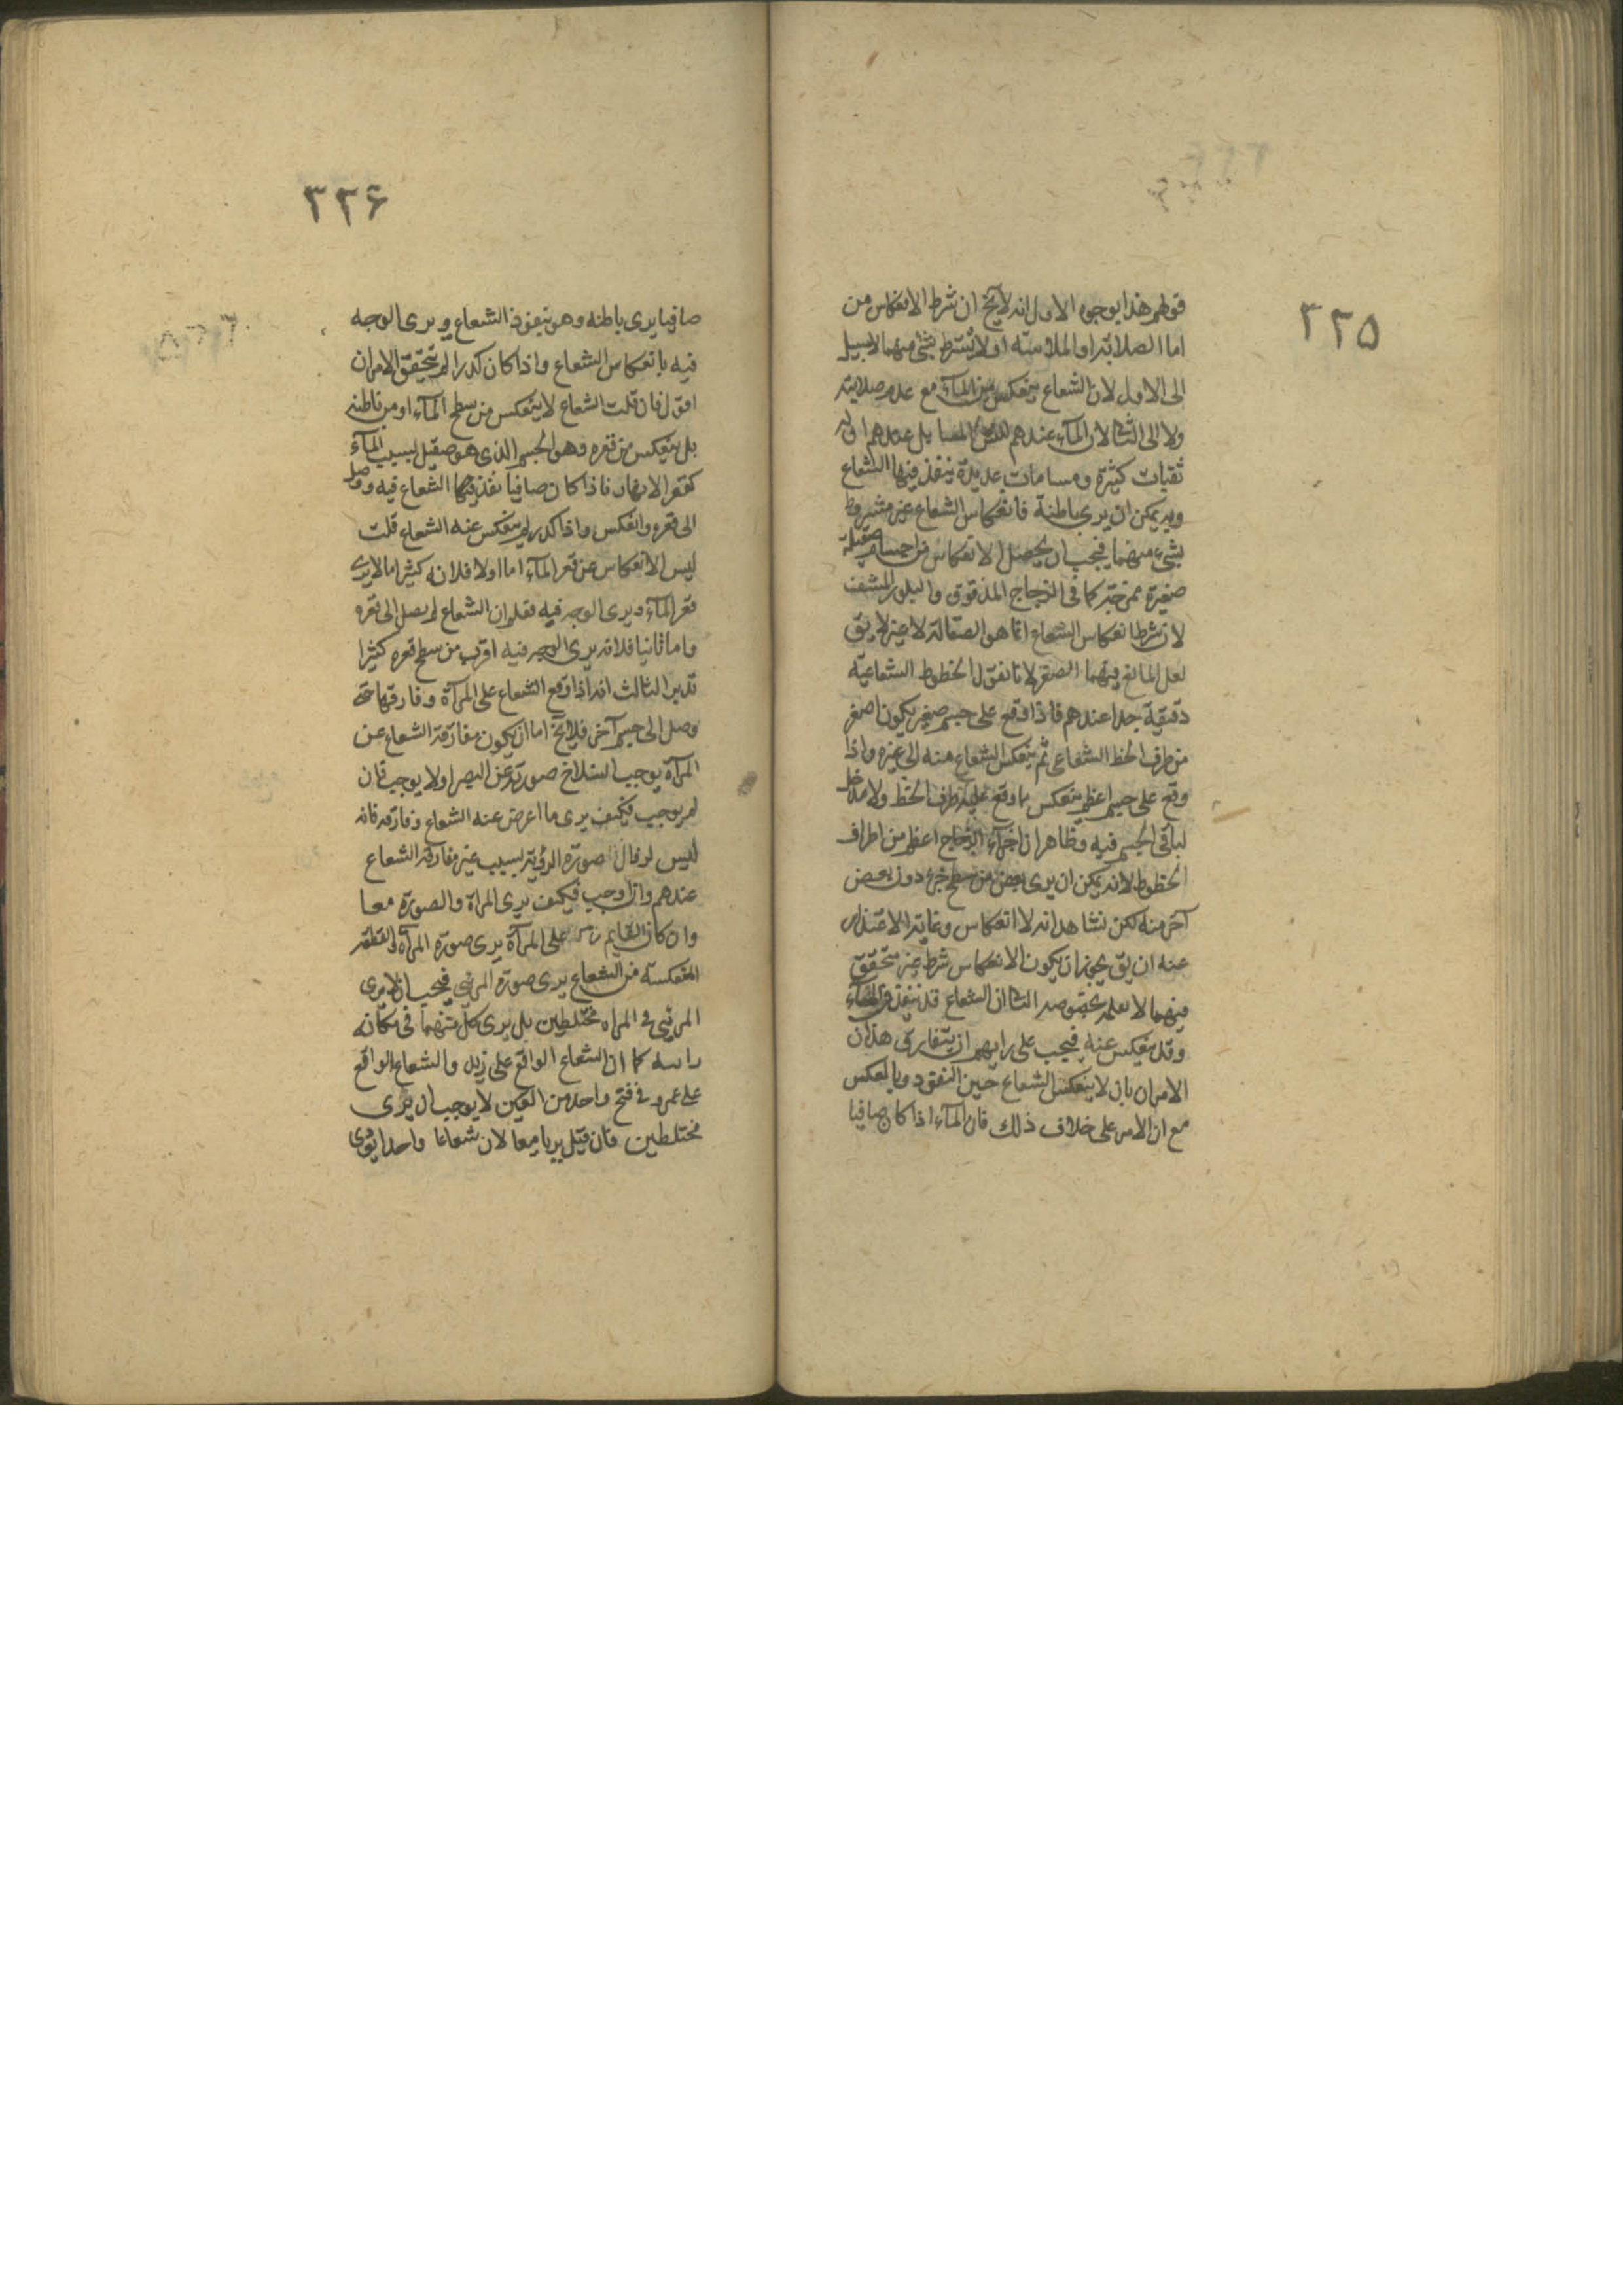 ٣٢٥
قولهم هذا بوجوه الاول انه لا يخ ان شرط الانعكاس من
اما الصلابة او الملاسة او لا يشترط بشئ منهما لا سبيل
الى الاول لان الشعاع ينعكس من المآء مع عدم صلابته
ولا الى الثانى لان المآء عندهم
ثقبات كثيرة ومسامات عديدة ينفذ فيها الشعاع
وبه يمكن ان يرى باطنه فانعكاس الشعاع غير مشروط
بشئ منهما فيجب ان يحصل الانعكاس من اجسام صقيلة
صغيرة كما فى الزجاج المدقوق والبلور المشف
لان شرط انعكاس الشعاع انما هو الصقالة لا غير لا يق
لعل المانع فيهما الصغر لانا نقول الخطوط الشعاعية
دقيقة جدا عندهم فاذا وقع على جسم صغير يكون اصغر
من طرف الخط الشعاعى ثم ينعكس الشعاع منه الى غيره واذا
وقع على جسم اعظم ينعكس ما وقع عليه طرف الخط ولا مدخل
لباقى الجسم فيه وظاهر ان اجزآء الزجاج اعظم من اطراف
الخطوط لانه يمكن ان يرى بعض من سطح جزء دون بعض
آخر منه لكن نشاهد انه لا انعكاس وغاية الاعتذار
عنه ان يق يجوز ان يكون الانعكاس شرط غير متحقق
فيهما لا نعلمه بخصوصه الثانى ان الشعاع قد ينفذ فى المآء
وقد ينعكس عنه فيجب على رايهم ان يتفارق هذان
الامران بان لا ينعكس الشعاع حين النفوذ وبالعكس
مع ان الامر على خلاف ذلك فان المآء اذا كان صافيا
٣٢۶
صافيا يرى باطنه وهو بنفوذ الشعاع ويرى الوجه
فيه بانعكاس الشعاع واذا كان كدرا لم يتحقق الامران
اقول فان قلت الشعاع لا ينعكس من سطح المآء او من باطنه
بل ينعكس من قعره وهو الجسم الذى هو صقيل بسبب المآء
كقعر الانهار فاذا كان صافيا نفذ فيها الشعاع فيه ووصل
الى قعره وانعكس واذا كدر لم ينعكس عنه الشعاع قلت
ليس الانعكاس عن قعر المآء اما اولا فلانه كثيرا ما لا يرى
قعر المآء ويرى الوجه فيه فعلم ان الشعاع لم يصل الى قعره
واما ثانيا فلانه يرى الوجه فيه اقرب من سطح قعره كثيرا
تدبر الثالث انه اذا وقع الشعاع على المرآة وفارقها حتى
وصل الى جسم آخر فلا يخ اما ان يكون مفارقة الشعاع عن
المرآة يوجب انسلاخ صورته عن البصر او لا يوجب فان
لم يوجب فكيف يرى ما اعرض عنه الشعاع وفارقه فانه
ليس لزوال صورة الرؤية بسبب غير مفارقة الشعاع
عندهم وان اوجب فكيف يرى المرآة والصورة معا
وان كان القايم على المرآة يرى صورة المرآة والقطعة
المنعكسة من الشعاع يرى صورة المرئى فيجب ان لا يرى
المرئى فى المرآة مختلطين بل يرى كل منهما فى مكانه
راسه كما ان الشعاع الواقع على زيد والشعاع الواقع
على عمرو فى فتح واحد من العين لا يوجب ان يرى
مختلطين فان قيل يريا معا لان شعاعا واحدا يؤدى